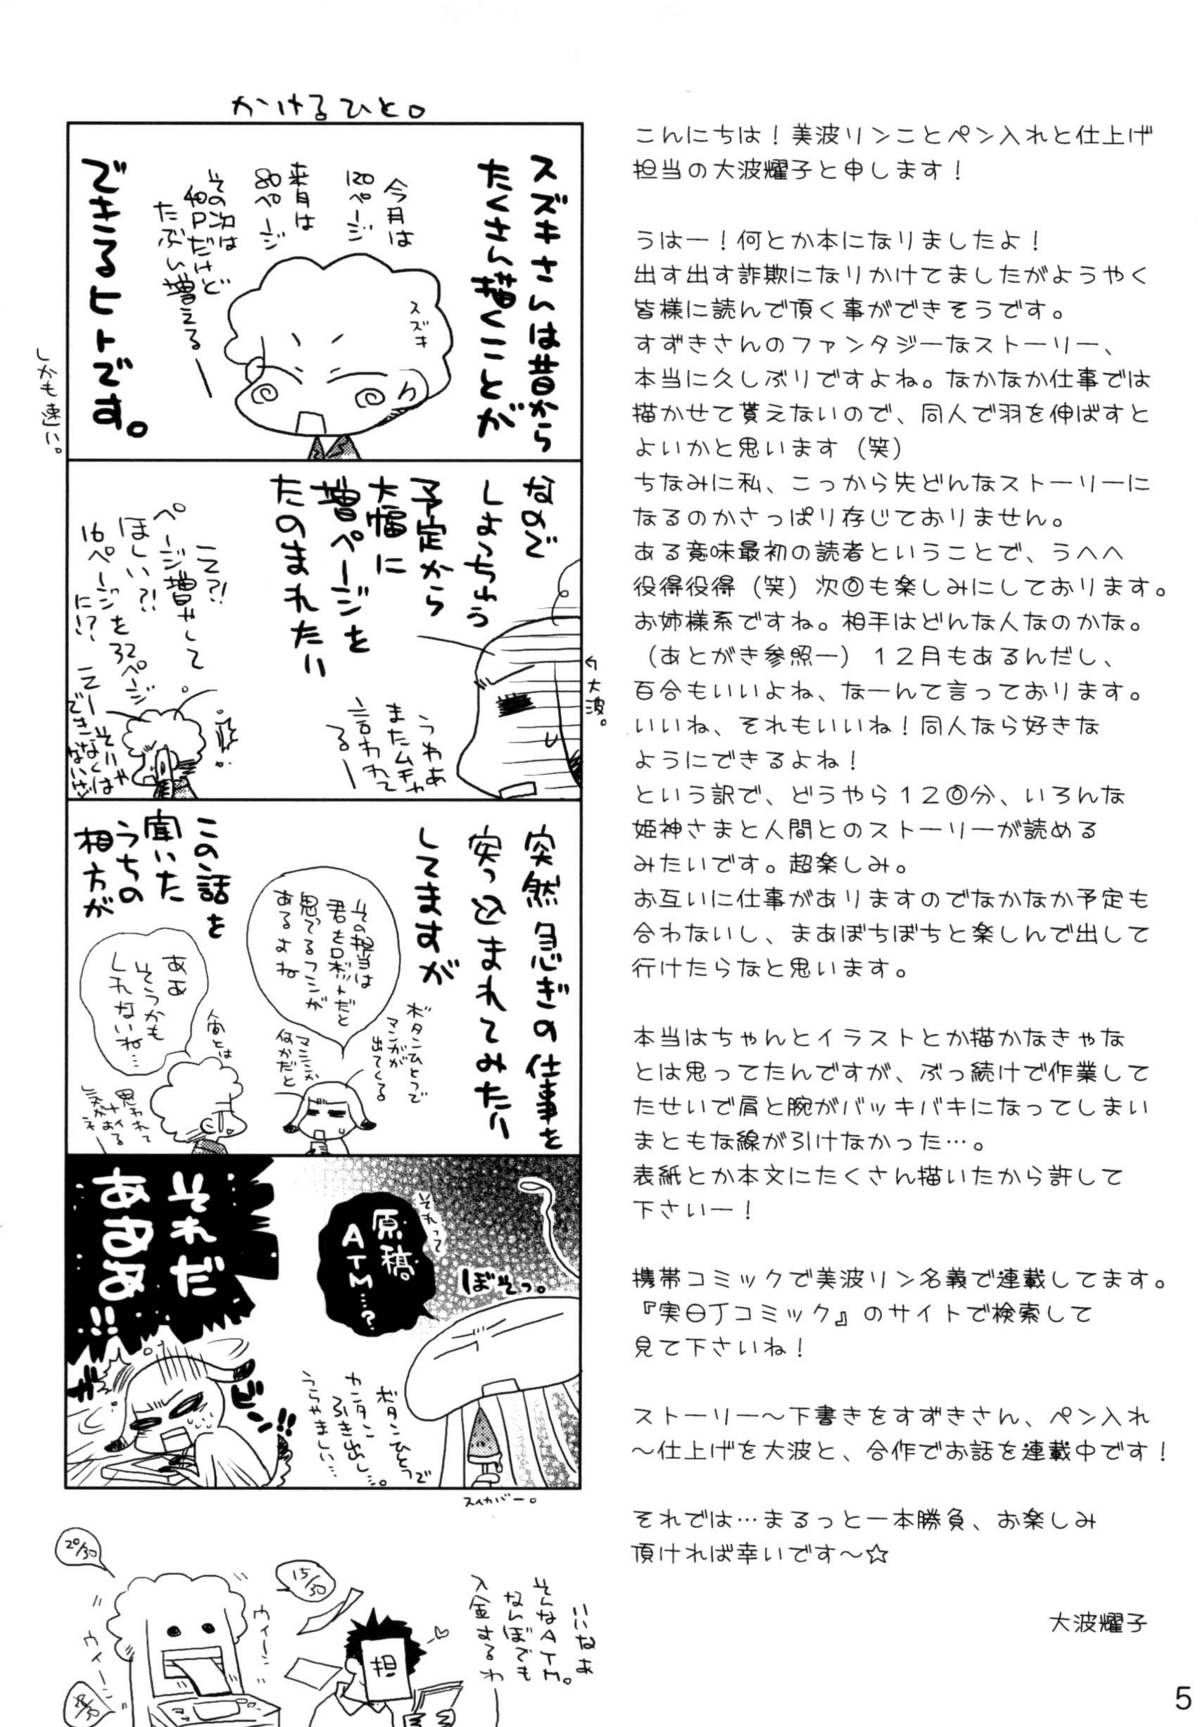 かけるひと。
スズキさんは昔から
たくさん描くことが
できるヒトです。
しかも速い。
今月は
120ページ
来月は
80ページ
その次は
40Pだけど
たぶん増える——
スズキ
なので
しょっちゅう
予定から
大幅に
増ページを
たのまれたり
↑大波。
うわあ
またムチャ
言われて
る——
えっ?!
ページ増やして
ほしい?!
16ページを32ページ
に!?
えー
できなくは
ないけど
突然急ぎの仕事を
突っ込まれてみたり
してますが
その担当は
君をロボットだと
思ってるフシが
あるよね
ボタンひとつで
マンガが
出てくる
マシンか
何かだと
この話を
聞いた
うちの
相方が
ああ
そうかも
しれないね…
人間とは
思われて
ない
気がする
それって
原稿
ATM…?
ぼそっ。
それだ
あああ!!
ガッ
ビーン!!
ボタンひとつで
カンタン
ふき出し…。
うらやましい…
スイカバー。
20/30
15/30
ウィーン
ウィーン
担
いいなあ
そんなATM。
なんぼでも
入金するわ
こんにちは！美波リンことペン入れと仕上げ
担当の大波耀子と申します！
うはー！何とか本になりましたよ！
出す出す詐欺になりかけてましたがようやく
皆様に読んで頂く事ができそうです。
すずきさんのファンタジーなストーリー、
本当に久しぶりですよね。なかなか仕事では
描かせて貰えないので、同人で羽を伸ばすと
よいかと思います（笑）
ちなみに私、こっから先どんなストーリーに
なるのかさっぱり存じておりません。
ある意味最初の読者ということで、うへへ
役得役得（笑）次回も楽しみにしております。
お姉様系ですね。相手はどんな人なのかな。
（あとがき参照ー）１２月もあるんだし、
百合もいいよね、なーんて言っております。
いいね、それもいいね！同人なら好きな
ようにできるよね！
という訳で、どうやら１２回分、いろんな
姫神さまと人間とのストーリーが読める
みたいです。超楽しみ。
お互いに仕事がありますのでなかなか予定も
合わないし、まあぼちぼちと楽しんで出して
行けたらなと思います。
本当はちゃんとイラストとか描かなきゃな
とは思ってたんですが、ぶっ続けで作業して
たせいで肩と腕がバッキバキになってしまい
まともな線が引けなかった…。
表紙とか本文にたくさん描いたから許して
下さいー！
携帯コミックで美波リン名義で連載してます。
『実日Jコミック』のサイトで検索して
見て下さいね！
ストーリー～下書きをすずきさん、ペン入れ
～仕上げを大波と、合作でお話を連載中です！
それでは…まるっと一本勝負、お楽しみ
頂ければ幸いです～☆
大波耀子
5